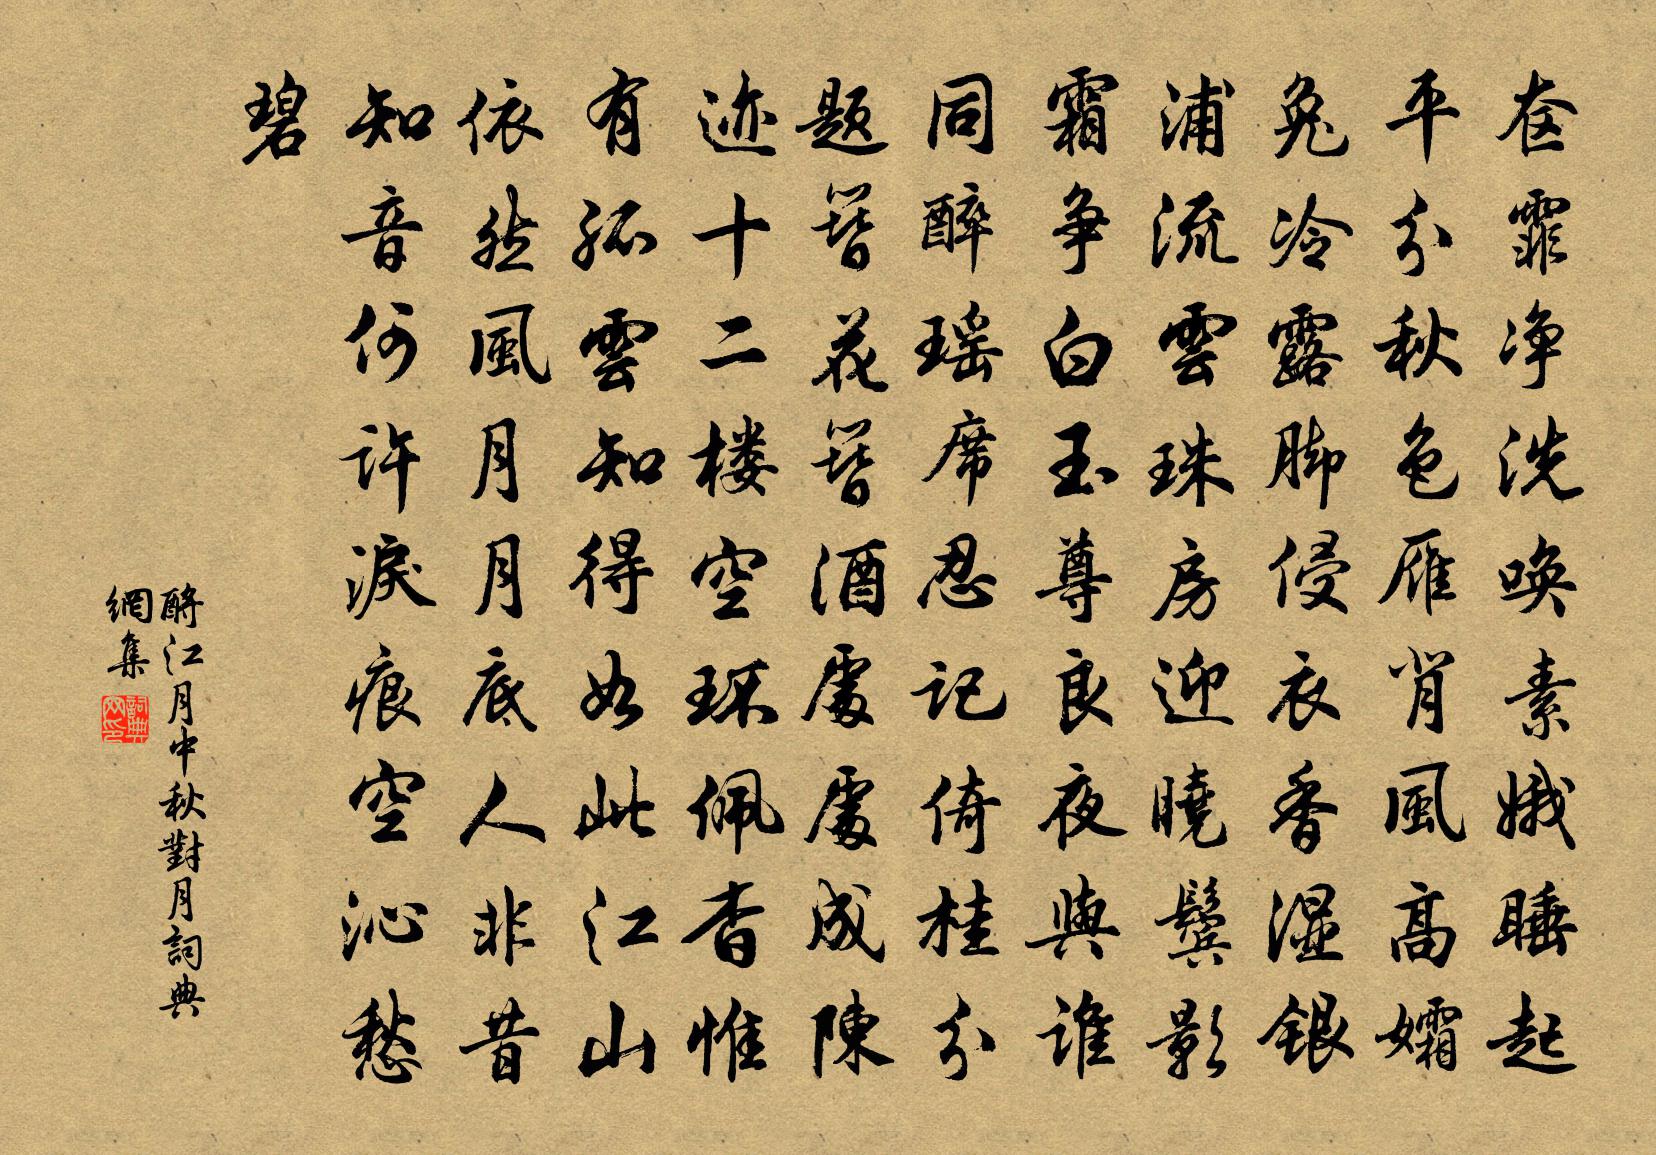 奁霏净洗唤素娥睡起
平分秋色雁背風高孀
兔冷露脚侵衣香湿銀
浦流雲珠房迎曉鬓影
霜争白玉尊良夜與谁
同醉瑶席忍记倚桂分
题簪花簪酒處處成陳
迹十二楼空环佩杳惟
有孤雲知得如此江山
依然風月月底人非昔
知音何许淚痕空沁愁
碧
酹江月中秋對月詞典
網集
詞典